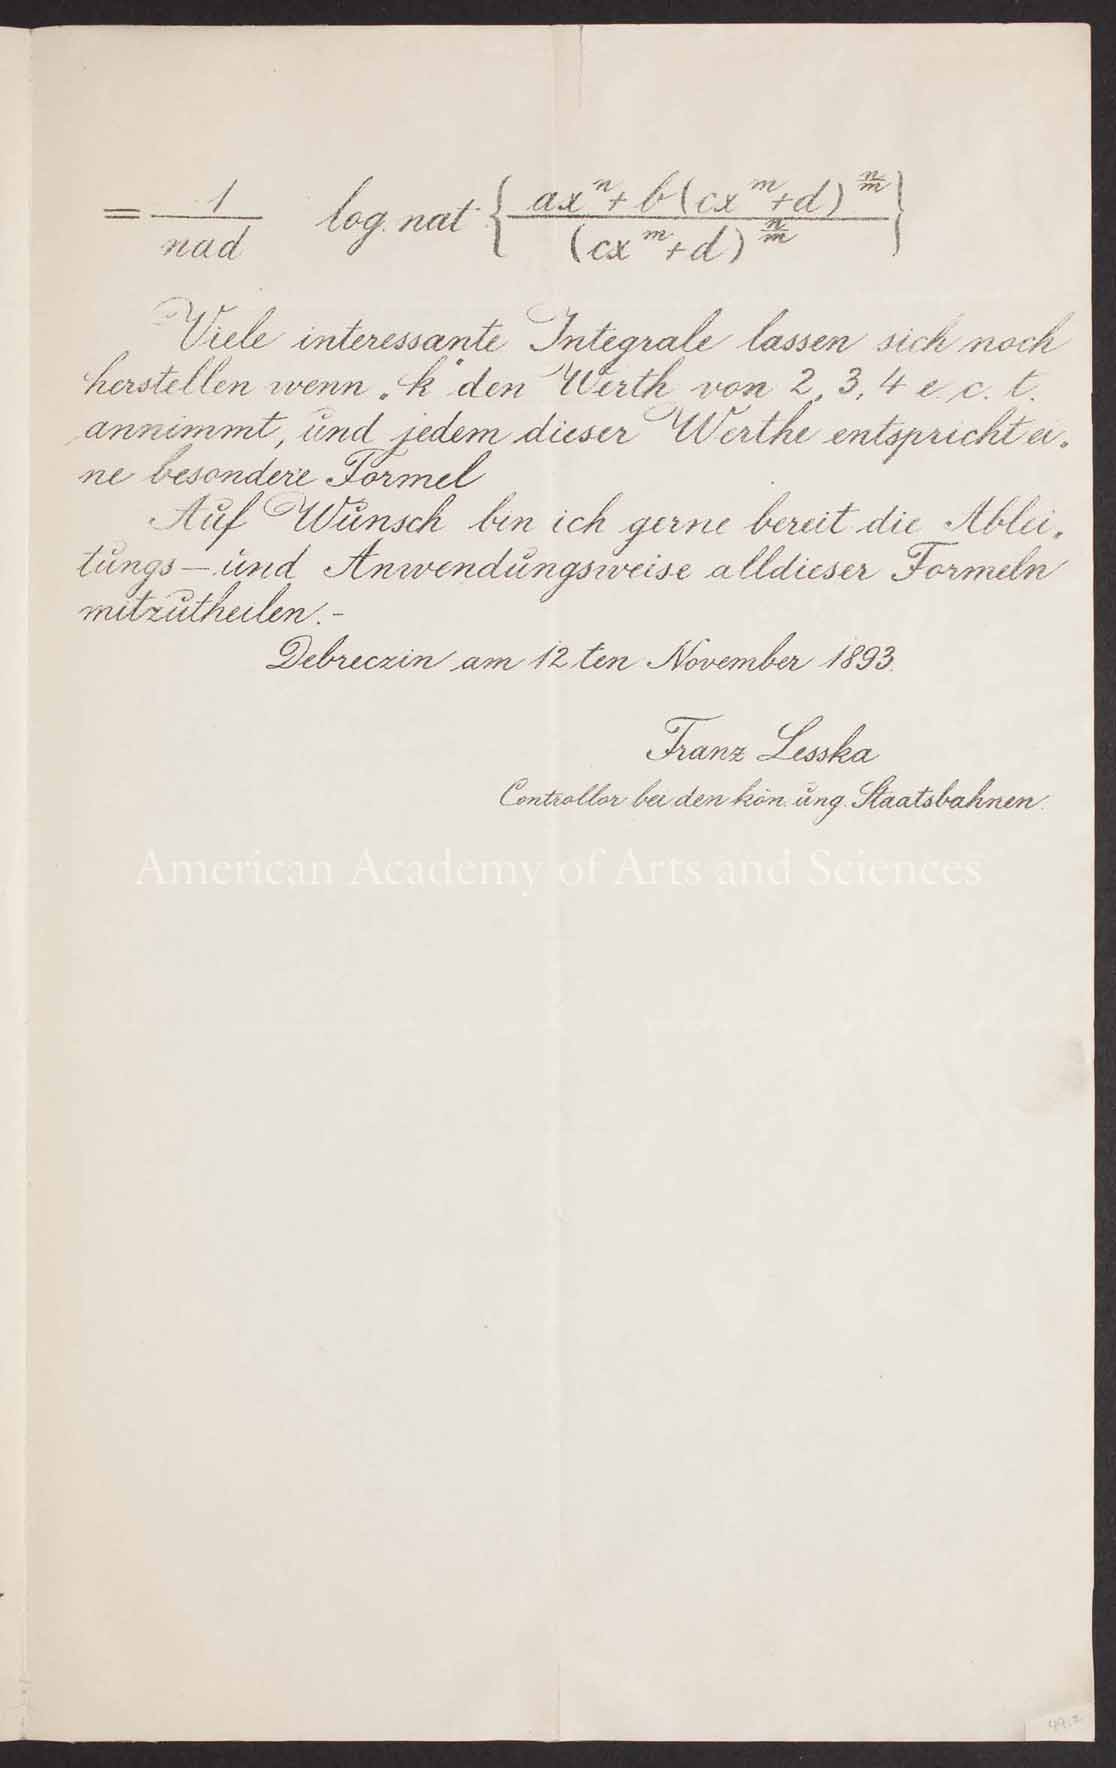 = 1/nad log. nat. { ax^n + b (cx^m + d)^(n/m) / (cx^m + d)^(n/m) }
Viele interessante Integrale lassen sich noch
herstellen wenn „k" den Werth von 2, 3, 4 e. c. t.
annimmt, und jedem dieser Werthe entspricht ei„
ne besondere Formel
Auf Wunsch bin ich gerne bereit die Ablei„
tungs — und Anwendungsweise alldieser Formeln
mitzutheilen. -
Debreczin am 12 ten November 1893.
Franz Lesska
Controllor bei den kön. ung. Staatsbahnen.
American Academy of Arts and Sciences
49.2